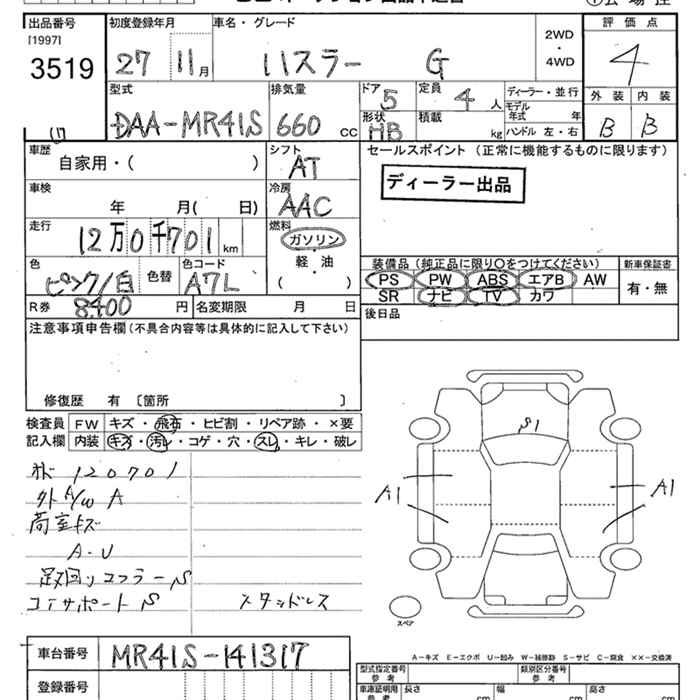 出品番号
[1997]
3519
初度登録年月
27 11月
車名・グレード
ハスラー G
2WD
・
4WD
評価点
4
外装 内装
B B
型式
DAA-MR41S
排気量
660 cc
ドア
5
定員
4 人
形状
HB
積載
kg
ディーラー・並行
モデル
年式 年
ハンドル 左・右
車歴
自家用・( )
シフト
AT
車検
年 月( 日)
冷房
AAC
走行
12万0千701 km
燃料
ガソリン
軽・油
( )
色
ピンク/白
色替
色コード
A7L
R券
8,400 円
名変期限 月 日
セールスポイント (正常に機能するものに限ります)
ディーラー出品
装備品 (純正品に限り○をつけてください)
PS PW ABS エアB AW
SR ナビ TV カワ
新車保証書
有・無
後日品
注意事項申告欄 (不具合内容等は具体的に記入して下さい)
修復歴 有 〔箇所 〕
検査員
記入欄
FW キズ・飛石・ヒビ割・リペア跡・×要
内装 キズ・汚レ・コゲ・穴・スレ・キレ・破レ
120701
外A/W A
荷室キズ
A・U
足回リマフラーS
コアサポートS スタッドレス
S1
A1
A1
スペア
A-キズ E-エクボ U-凹み W-補修跡 S-サビ C-腐食 ××-交換済
車台番号
MR41S-141317
登録番号
型式指定番号
参考
類別区分番号
参考
車庫証明用
参考
長さ cm
幅 cm
高さ cm